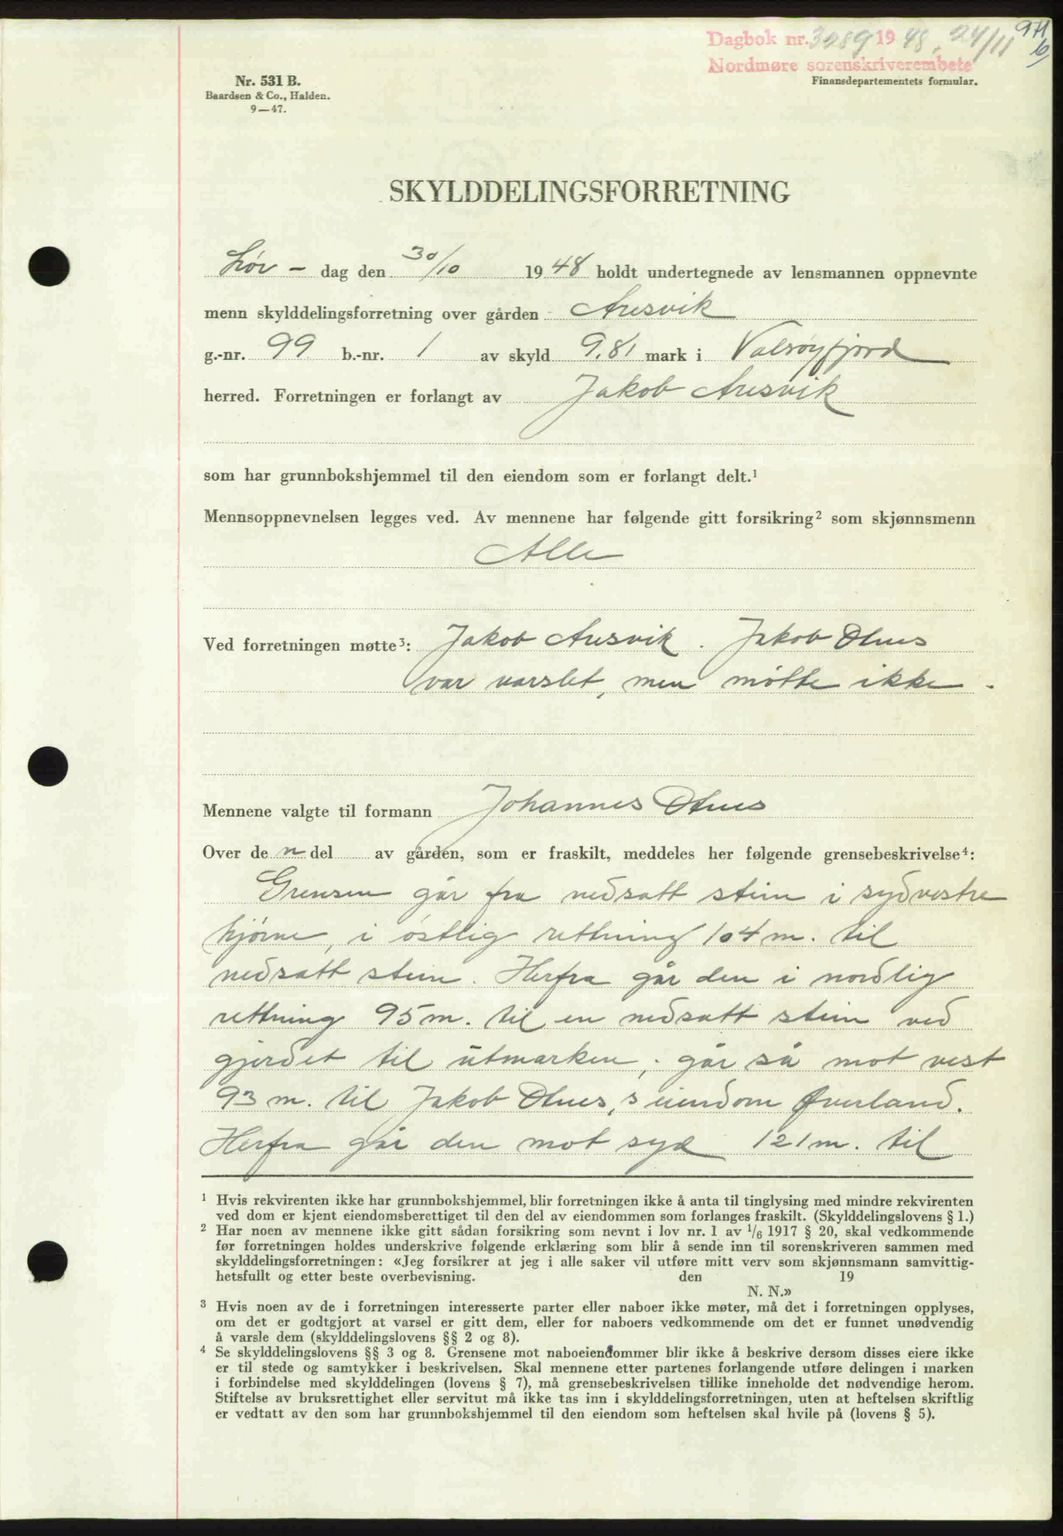 Dagbok nr. 3089 1948, 24/11
Nordmøre sorenskriverembete
Nr. 531 B.
Baardsen & Co., Halden.
9—47.
Finansdepartementets formular.
SKYLDDELINGSFORRETNING
Lør- dag den 30/10 1948 holdt undertegnede av lensmannen oppnevnte
menn skylddelingsforretning over gården Aresvik
g.-nr. 99 b.-nr. 1 av skyld 9,81 mark i Valsøyfjord
herred. Forretningen er forlangt av Jakob Aresvik
som har grunnbokshjemmel til den eiendom som er forlangt delt.¹
Mennsoppnevnelsen legges ved. Av mennene har følgende gitt forsikring² som skjønnsmenn
Alle
Ved forretningen møtte³: Jakob Aresvik. Jakob Otnes
var varslet, men møtte ikke.
Mennene valgte til formann Johannes Otnes
Over de n del av gården, som er fraskilt, meddeles her følgende grensebeskrivelse⁴:
Grensen går fra nedsatt stein i sydvestre
hjørne, i østlig rettning 104 m. til
nedsatt stein. Herfra går den i nordlig
rettning 95 m. til en nedsatt stein ved
gjerdet til utmarken, går så mot vest
93 m. til Jakob Otnes,s eiendom Øverland.
Herfra går den mot syd 121 m. til
¹ Hvis rekvirenten ikke har grunnbokshjemmel, blir forretningen ikke å anta til tinglysing med mindre rekvirenten
ved dom er kjent eiendomsberettiget til den del av eiendommen som forlanges fraskilt. (Skylddelingslovens § 1.)
² Har noen av mennene ikke gitt sådan forsikring som nevnt i lov nr. 1 av 1/6 1917 § 20, skal vedkommende
før forretningen holdes underskrive følgende erklæring som blir å sende inn til sorenskriveren sammen med
skylddelingsforretningen: «Jeg forsikrer at jeg i alle saker vil utføre mitt verv som skjønnsmann samvittig-
hetsfullt og etter beste overbevisning. den 19
N. N.»
³ Hvis noen av de i forretningen interesserte parter eller naboer ikke møter, må det i forretningen opplyses,
om det er godtgjort at varsel er gitt dem, eller for naboers vedkommende om det er funnet unødvendig
å varsle dem (skylddelingslovens §§ 2 og 8).
⁴ Se skylddelingslovens §§ 3 og 8. Grensene mot naboeiendommer blir ikke å beskrive dersom disses eiere ikke
er til stede og samtykker i beskrivelsen. Skal mennene etter partenes forlangende utføre delingen i marken
i forbindelse med skylddelingen (lovens § 7), må grensebeskrivelsen tillike inneholde det nødvendige herom.
Stiftelse av bruksrettighet eller servitut må ikke tas inn i skylddelingsforretningen, uten at heftelsen skriftlig
er vedtatt av den som har grunnbokshjemmel til den eiendom som heftelsen skal hvile på (lovens § 5).